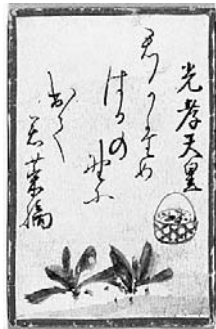 光孝天皇
君かため
はるの野に
出て
若菜摘